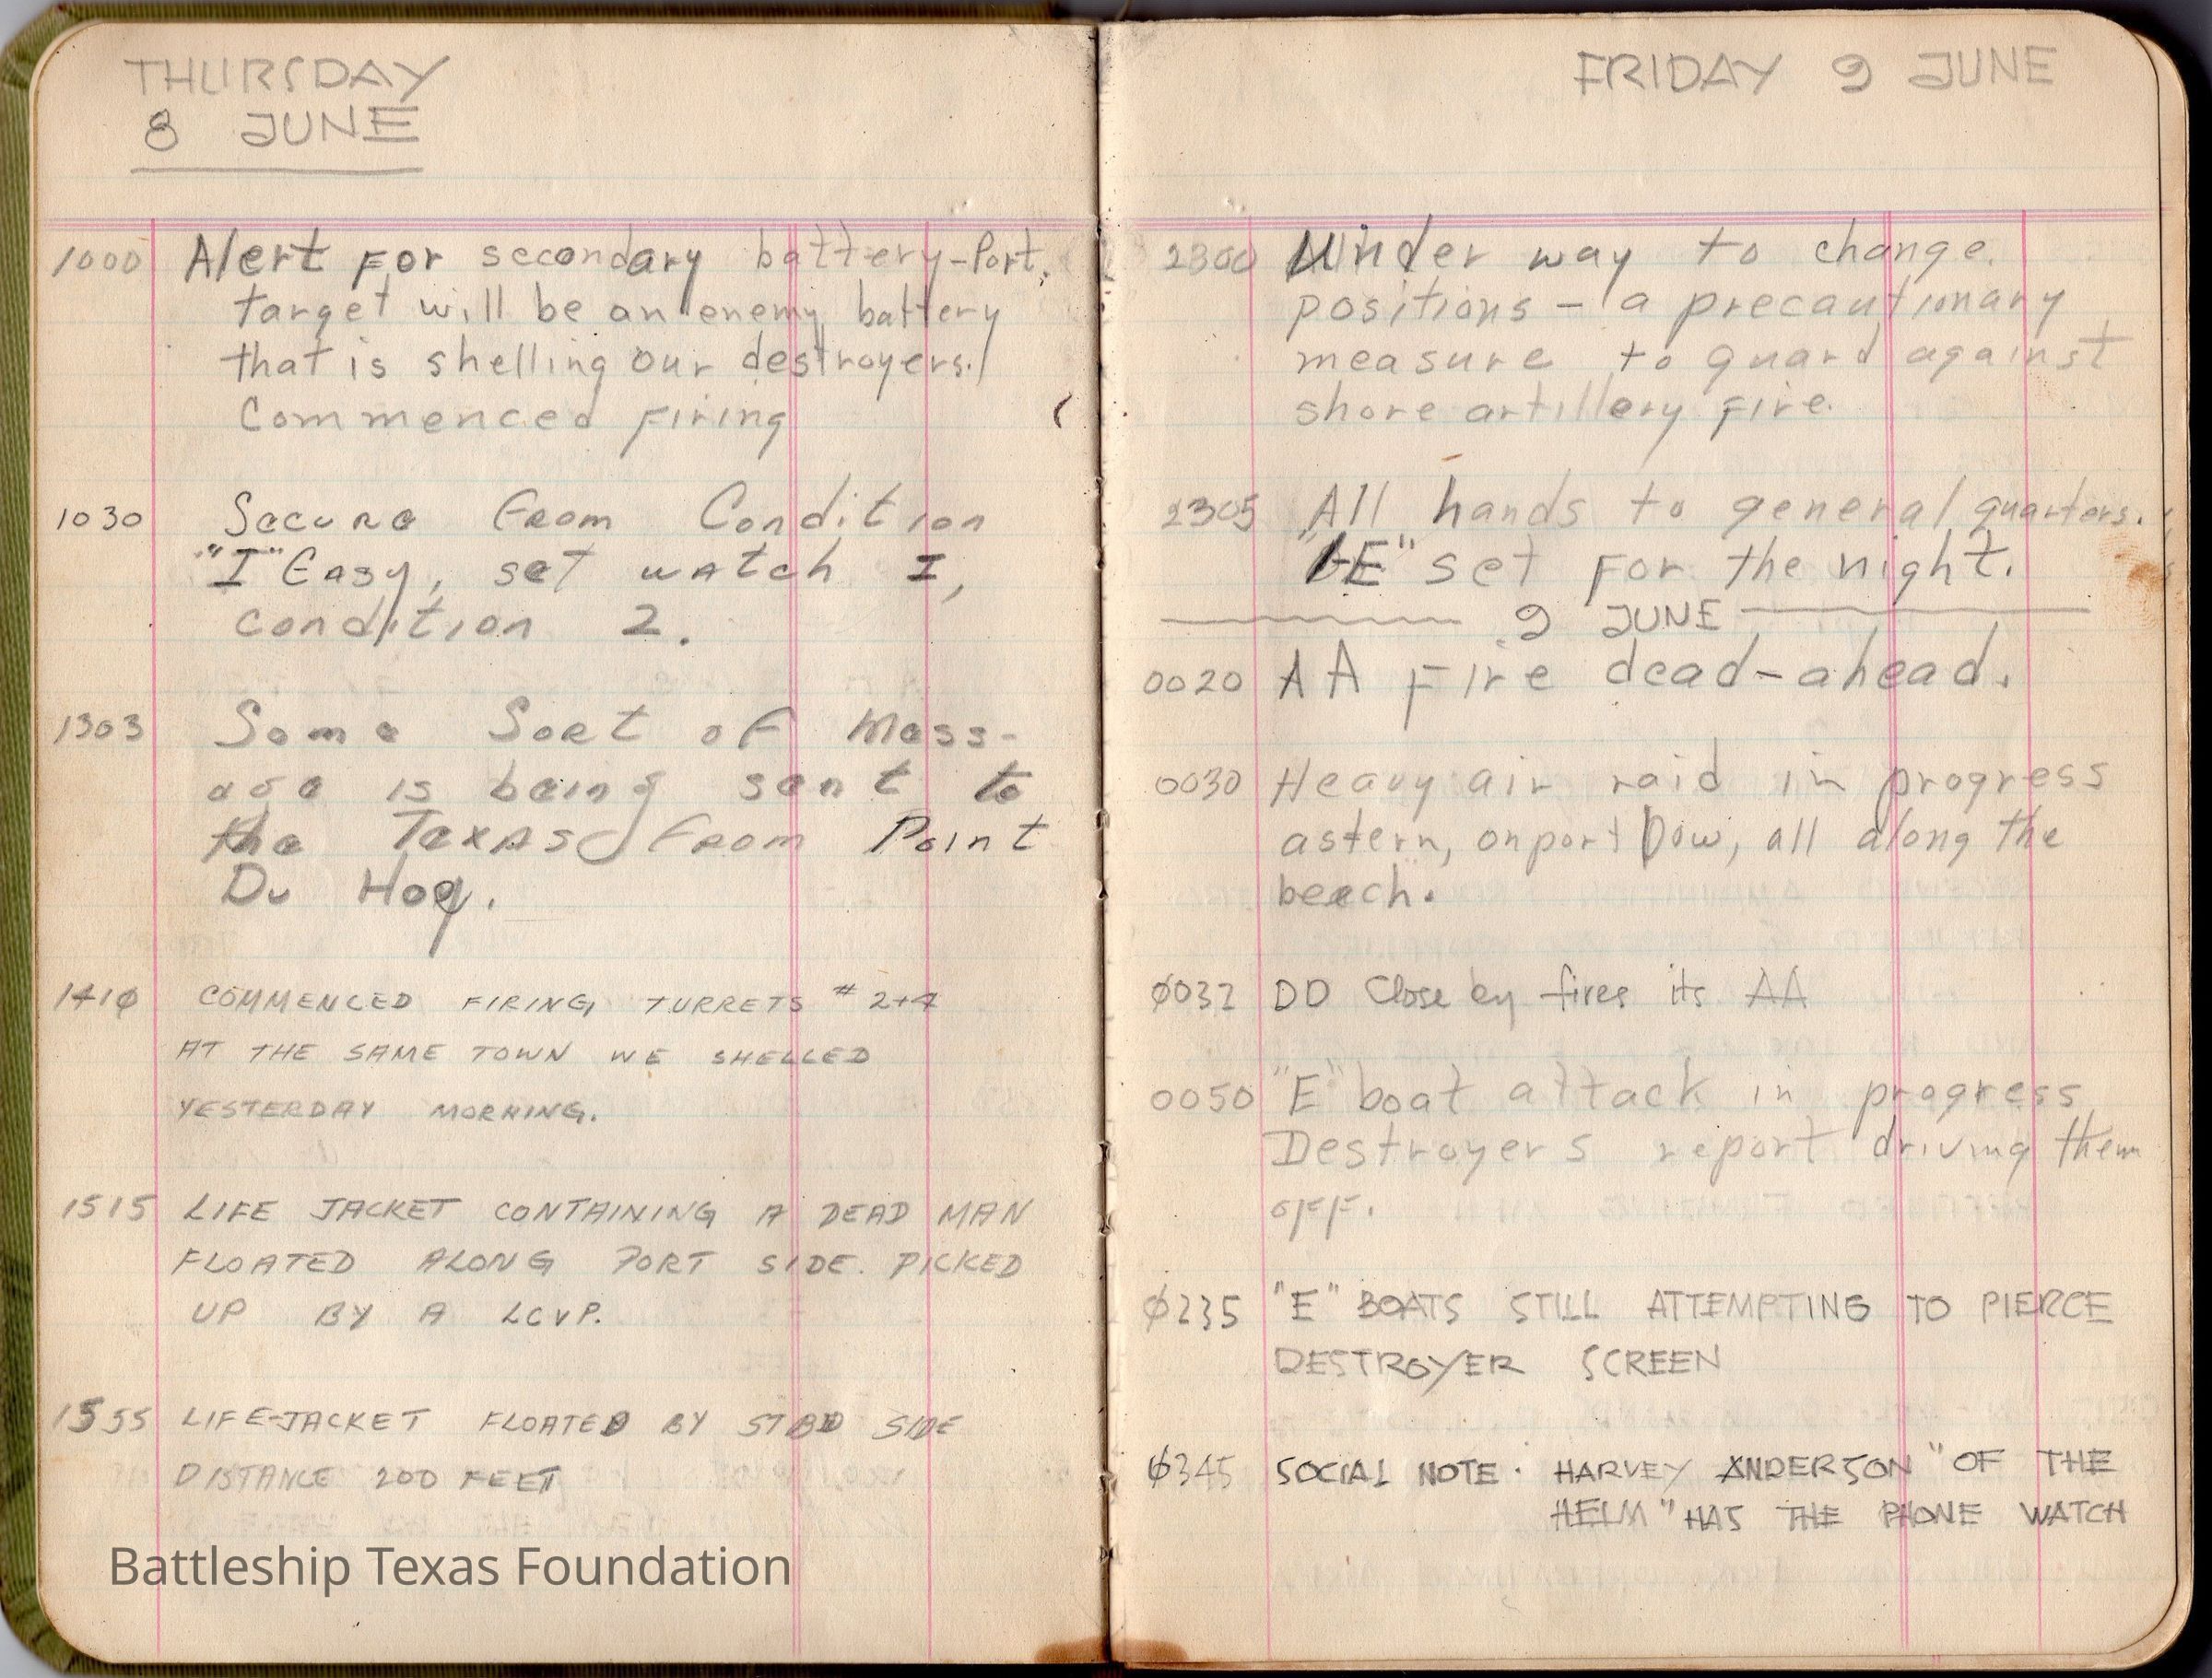 THURSDAY
8 JUNE
1000 Alert for secondary battery-Port,
target will be an enemy battery
that is shelling our destroyers.
Commenced firing
1030 Secure from Condition
"I" Easy, set watch I,
condition 2.
1303 Some Sort of Mess-
age is being sent to
the Texas from Point
Du Hoq.
141Ø COMMENCED FIRING TURRETS #2+4
AT THE SAME TOWN WE SHELLED
YESTERDAY MORNING.
1515 LIFE JACKET CONTAINING A DEAD MAN
FLOATED ALONG PORT SIDE. PICKED
UP BY A LCVP.
1555 LIFE-JACKET FLOATED BY STBD SIDE
DISTANCE 200 FEET
Battleship Texas Foundation
FRIDAY 9 JUNE
2300 Under way to change
positions - a precautionary
measure to guard against
shore artillery fire.
2305 All hands to general quarters.
"IE" set for the night.
9 JUNE
0020 AA Fire dead-ahead.
0030 Heavy air raid in progress
astern, on port bow, all along the
beach.
Ø032 DD Close by fires its AA
0050 "E" boat attack in progress
Destroyers report driving them
off.
Ø235 "E" BOATS STILL ATTEMPTING TO PIERCE
DESTROYER SCREEN
Ø345 SOCIAL NOTE · HARVEY ANDERSON "OF THE
HELM" HAS THE PHONE WATCH